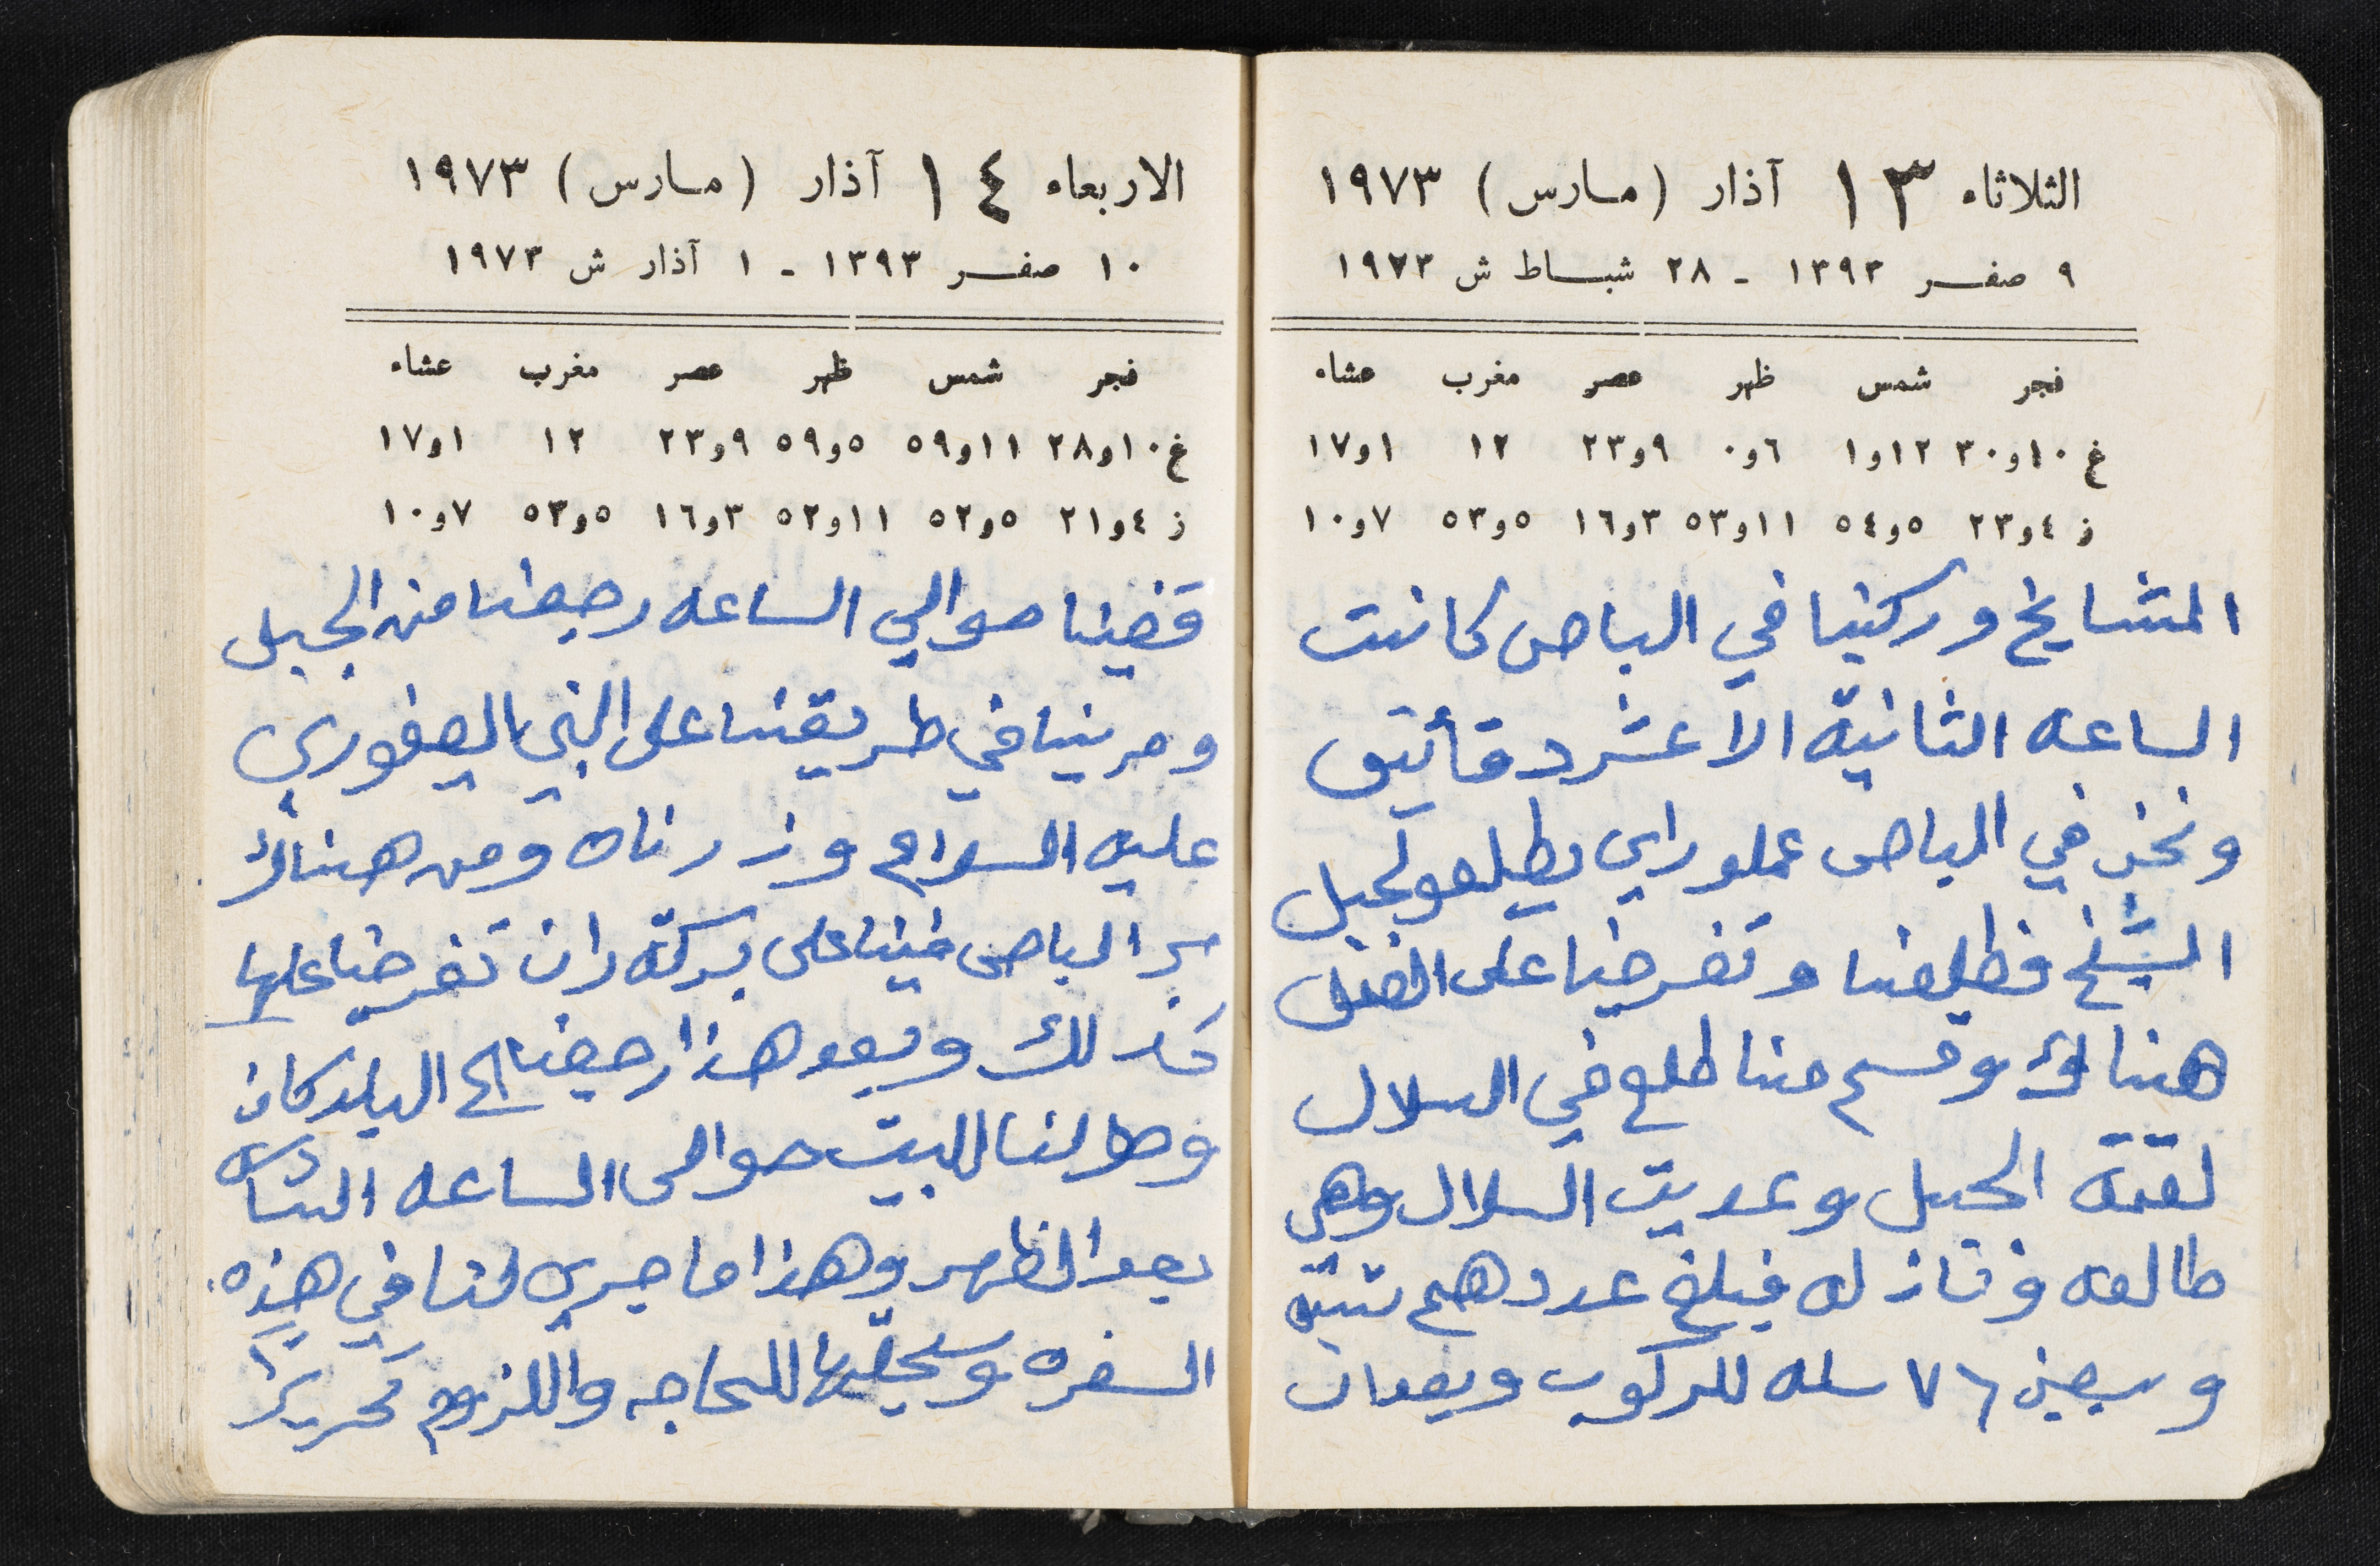 الثلاثاء ١٣ آذار (مارس) ١٩٧٣
٩ صفر ١٣٩٣ - ٢٨ شباط ش ١٩٧٣
فجر شمس ظهر عصر مغرب عشاء
غ ١٠و٣٠ ١٢و١ ٦و٠ ٩و٢٣ ١٢ ١و١٧
ز ٤و٢٣ ٥و٥٤ ١١و٥٣ ٣و١٦ ٥و٥٣ ٧و١٠
المشايخ وركبنا في الباص كانت
الساعه الثانية الا عشر دقائق
ونحن في الباص عملو راي يطلعو لجبل
الشيخ فطلعنا وتفرجنا على
هناك وقسم منا طلع في السلال
لقمة الجبل وعديت السلال وهي
طالعه ونازله فبلغ عددهم ستة
وسبعين ٧٦ سله للركوب وبعدان
الاربعاء ١٤ آذار (مارس) ١٩٧٣
١٠ صفر ١٣٩٣ - ١ آذار ش ١٩٧٣
فجر شمس ظهر عصر مغرب عشاء
غ ١٠و٢٨ ١١و٥٩ ٥و٥٩ ٩و٢٣ ١٢ ١و١٧
ز ٤و٢١ ٥و٥٢ ١١و٥٢ ٣و١٦ ٥و٥٣ ٧و١٠
قضينا حوالي الساعه رجعنا من الجبل
ومرينا في طريقنا على النبي اليعفوري
عليه السلام وزرناه ومن هناك
الباص على بركة ران تفرجنا عليها
كذلك وبعد هذا رجعنا الى البلد كان
وصولنا للبيت حوالى الساعه
بعد الظهر وهذا ما جرى لنا في هذه
السفره للحاجه واللزوم تحريرا